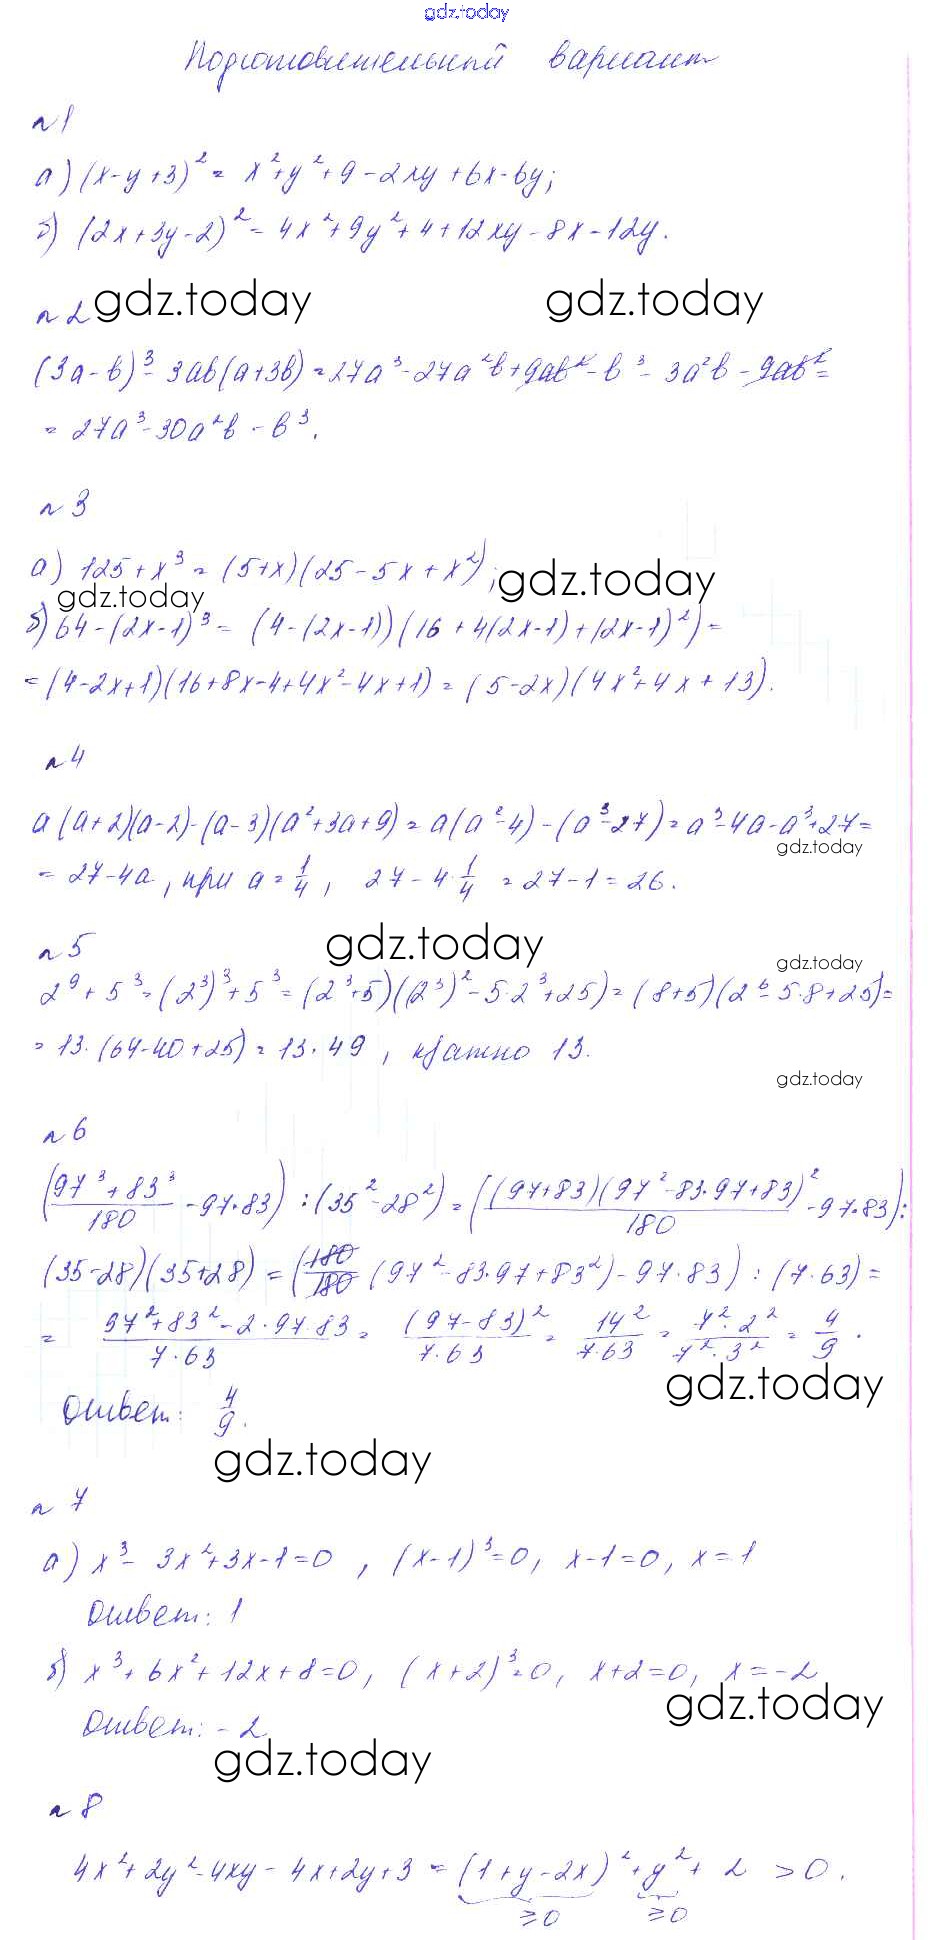 gdz.today
Подготовительный вариант
n 1
а) (x-y+3)² = x²+y²+9-2xy+6x-6y;
б) (2x+3y-2)² = 4x²+9y²+4+12xy-8x-12y.
n 2 gdz.today gdz.today
(3a-b)³-3ab(a+3b) = 27a³-27a²b+9ab²-b³-3a²b-9ab²=
= 27a³-30a²b-b³.
n 3
а) 125+x³ = (5+x)(25-5x+x²); gdz.today
gdz.today
б) 64-(2x-1)³ = (4-(2x-1))(16+4(2x-1)+(2x-1)²)=
=(4-2x+1)(16+8x-4+4x²-4x+1) = (5-2x)(4x²+4x+13).
n 4
a(a+2)(a-2)-(a-3)(a²+3a+9) = a(a²-4)-(a³-27) = a³-4a-a³+27=
gdz.today
= 27-4a, при a = 1/4, 27-4·1/4 = 27-1 = 26.
n 5 gdz.today
gdz.today
2⁹+5³ = (2³)³+5³ = (2³+5)((2³)²-5·2³+25) = (8+5)(2⁶-5·8+25)=
= 13·(64-40+25) = 13·49, кратно 13.
gdz.today
n 6
((97³+83³)/180 - 97·83) : (35²-28²) = (((97+83)(97²-83·97+83)²)/180 - 97·83):
(35-28)(35+28) = (180/180 (97²-83·97+83²)-97·83) : (7·63) =
= (97²+83²-2·97·83)/(7·63) = (97-83)²/(7·63) = 14²/(7·63) = (7²·2²)/(7²·3²) = 4/9.
gdz.today
Ответ: 4/9.
gdz.today
n 7
а) x³-3x²+3x-1=0, (x-1)³=0, x-1=0, x=1
Ответ: 1
б) x³+6x²+12x+8=0, (x+2)³=0, x+2=0, x=-2
gdz.today
Ответ: -2
gdz.today
n 8
4x²+2y²-4xy-4x+2y+3 = (1+y-2x)²+y²+2 >0.
≥0 ≥0